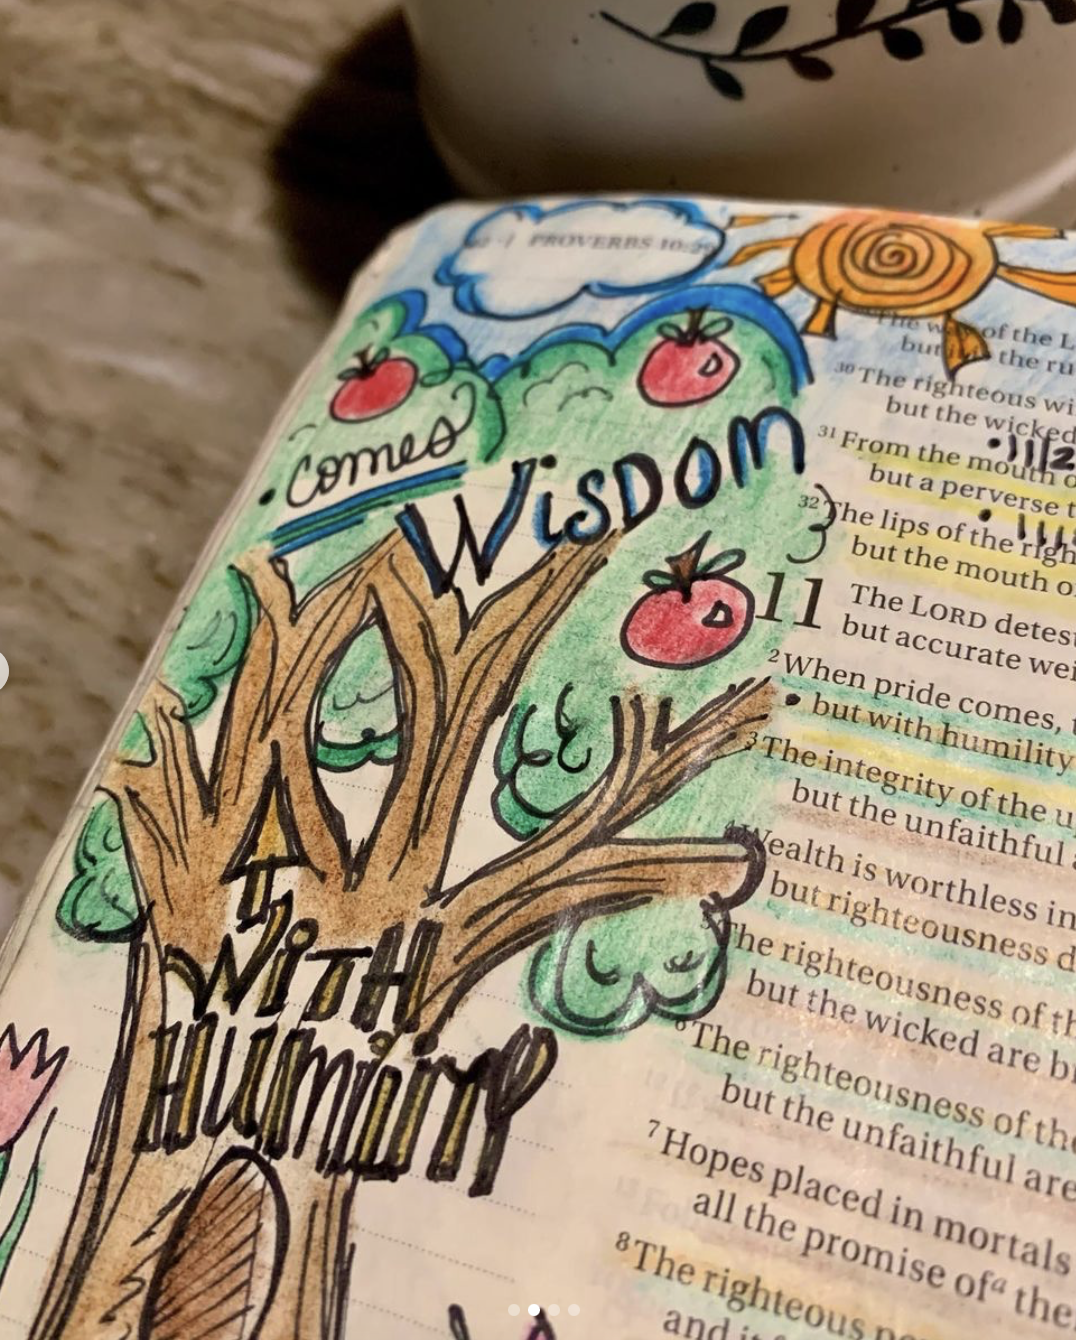 PROVERBS 10:29
comes
WISDOM
WITH
HUMILITY
The way of the L
but the ru
30 The righteous wi
but the wicked
31 From the mouth o
but a perverse t
32 The lips of the righ
but the mouth o
11 The LORD detes
but accurate wei
2 When pride comes, t
but with humility
3 The integrity of the u
but the unfaithful
4 Wealth is worthless in
but righteousness d
5 The righteousness of th
but the wicked are b
6 The righteousness of the
but the unfaithful are
7 Hopes placed in mortals
all the promise of a the
8 The righteous
and i